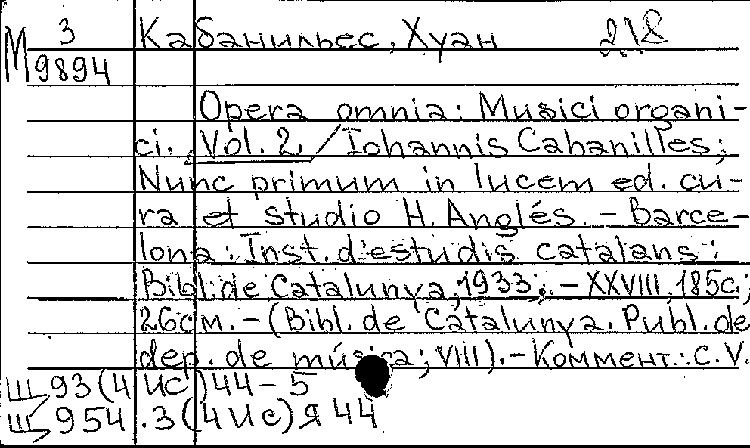 З Кабанильес, Хуан 218
М 9894
Opera omnia: Musici organi-
ci. Vol. 2 / Iohannis Cabanilles;
Nunc primum in lucem ed. cu-
ra et studio H. Anglés. – Barce-
lona: Inst. d'estudis catalans:
Bibl. de Catalunya, 1933. – XXVIII, 185 с.;
26 см. – (Bibl. de Catalunya. Publ. de
dep. de música; VIII). – Коммент.: с. V.
Щ 93(4 Ис)44-5
Щ 954.3(4 Ис)я 44